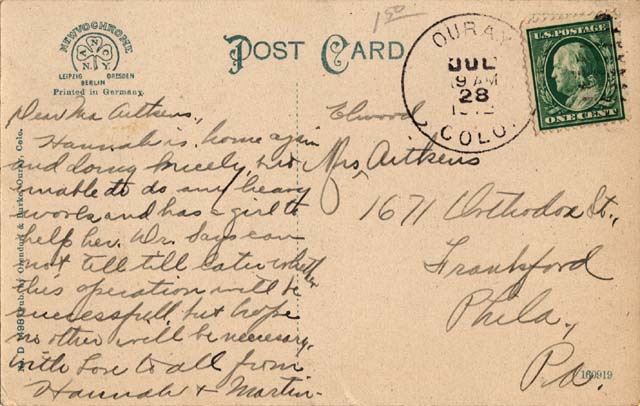 NEWVOCHROME
ANC
N.Y.
LEIPZIG DRESDEN
BERLIN
Printed in Germany.
POST CARD
1.50
OURAY
JUL
9 AM
28
COLO.
U.S. POSTAGE
ONE CENT
Dear Ma Aitkens,
Hannah is home again
and doing nicely, but
unable to do any heavy
work and has a girl to
help her. Dr. Says can
not tell till later whether
this operation will be
successfull, but hope
no other will be necessary,
with Love to all from
Hannah & Martin-
Elwood
Mrs Aitkens
1671 Orthodox St.,
Frankford
Phila.,
Pa.
160919
Pub. by Orendorf & Burke, Ouray, Colo.